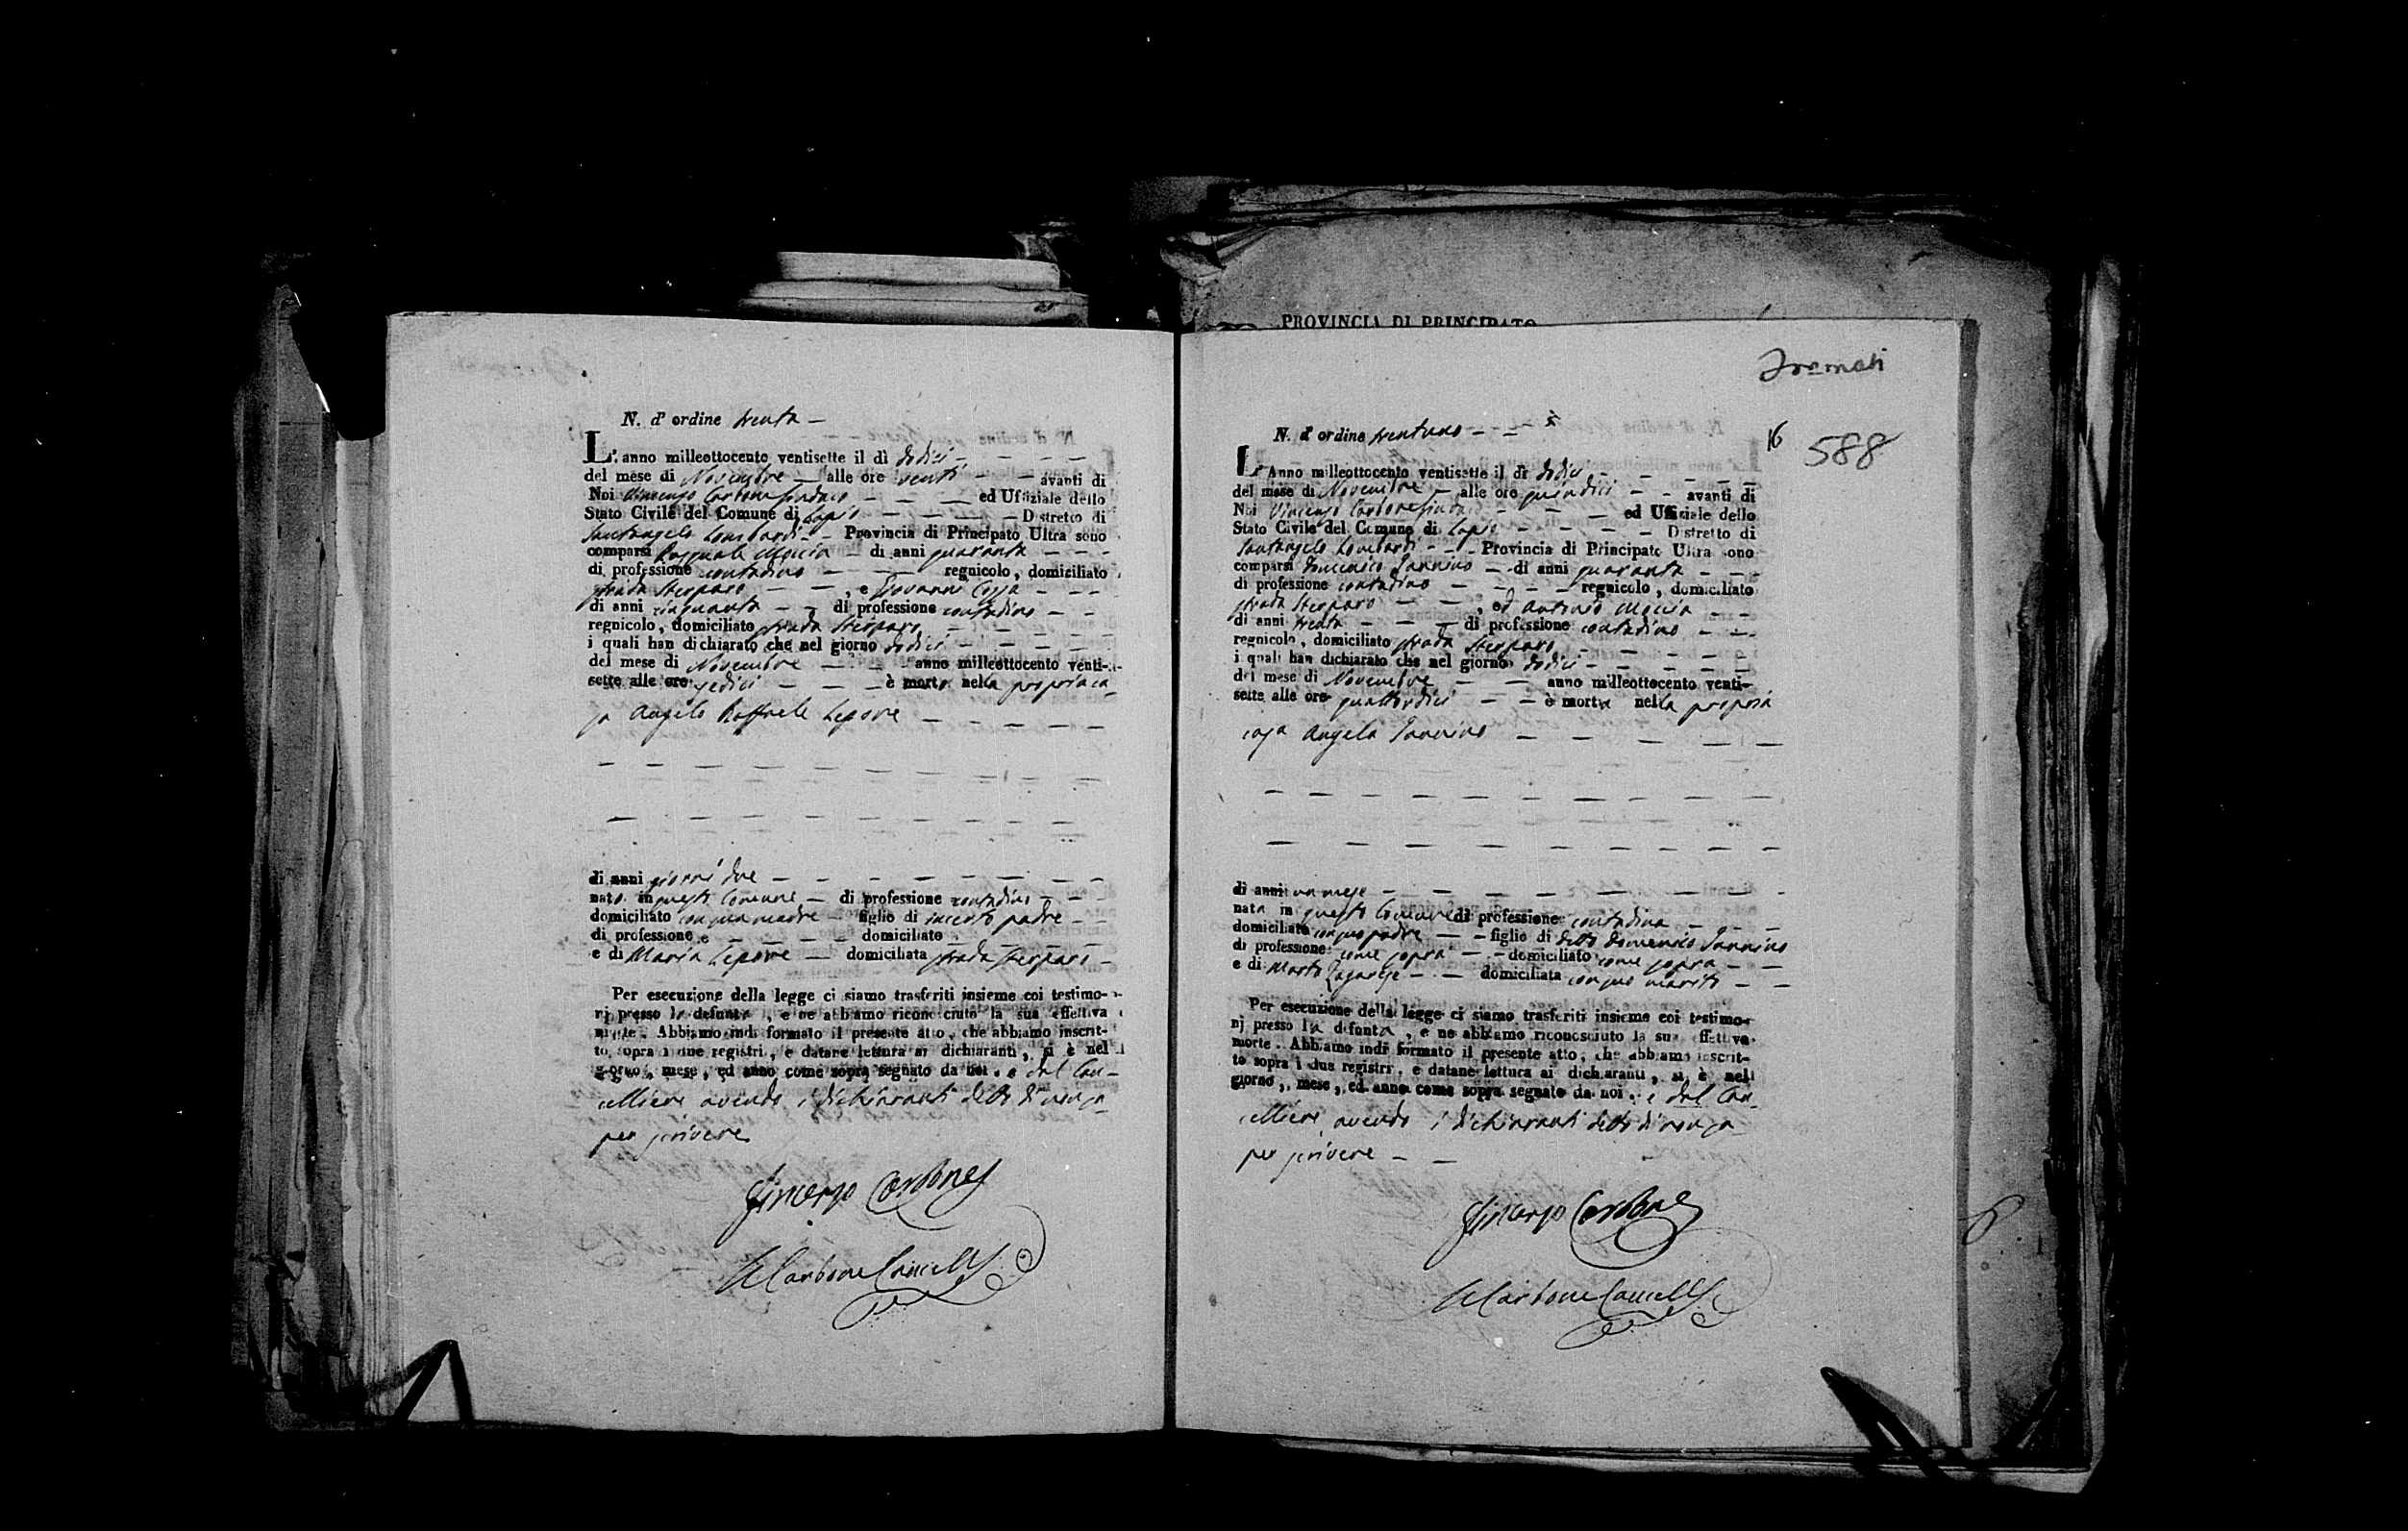 N. d' ordine trenta —
L' anno milleottocento ventisette il dì dodici
del mese di Novembre — alle ore venti — avanti di
Noi Vincenzo Carbone Sindaco — ed Uffiziale dello
Stato Civile del Comune di Lapio — Distretto di
Santangelo Lombardi — Provincia di Principato Ultra sono
comparsi Pasquale Moccia — di anni quaranta —
di professione contadino — regnicolo, domiciliato
strada Sterparo — , e Giovanni —
di anni cinquanta — di professione contadino —
regnicolo, domiciliato strada Sterparo
i quali han dichiarato che nel giorno dodici
del mese di Novembre — anno milleottocento venti-
sette alle ore sedici — è morto nella propria ca-
sa Angelo Raffaele Lepore —
di anni giorni due —
nato in questo Comune — di professione contadino —
domiciliato con sua madre — figlio di incerto padre —
di professione e — domiciliato —
e di Maria Lepore — domiciliata strada Sterparo —
Per esecuzione della legge ci siamo trasferiti insieme coi testimo-
nj presso la defunta , e ne abbiamo riconosciuto la sua effettiva
morte. Abbiamo indi formato il presente atto, che abbiamo inscrit-
to sopra i due registri, e datane lettura ai dichiaranti, si è nel
giorno, mese, ed anno come sopra segnato da noi, e dal Can-
celliere avendo i dichiaranti detto di non sa-
per scrivere
Vincenzo Carbone
Carbone Cancell
PROVINCIA DI PRINCIPATO
16
588
N. d' ordine trentuno —
L' Anno milleottocento ventisette il dì dodici —
del mese di Novembre — alle ore quindici — avanti di
Noi Vincenzo Carbone Sindaco — ed Uffiziale dello
Stato Civile del Comune di Lapio — Distretto di
Santangelo Lombardi — Provincia di Principato Ultra sono
comparsi Domenico Iannino — di anni quaranta —
di professione contadino — regnicolo, domiciliato
strada Sterparo — , ed Antonio Moccia —
di anni trenta — di professione contadino —
regnicolo, domiciliato strada Sterparo
i quali han dichiarato che nel giorno dodici —
del mese di Novembre — anno milleottocento venti-
sette alle ore quattordici — è morta nella propria
casa Angela Iannino —
di anni un mese —
nata in questo Comune di professione contadina —
domiciliata con suo padre — figlio di detto Domenico Iannino
di professione come sopra — domiciliato come sopra —
e di Marta — domiciliata con suo marito —
Per esecuzione della legge ci siamo trasferiti insieme coi testimo-
nj presso la defunta , e ne abbiamo riconosciuto la sua effettiva
morte. Abbiamo indi formato il presente atto, che abbiamo inscrit-
to sopra i due registri, e datane lettura ai dichiaranti, si è nel
giorno, mese, ed anno come sopra segnato da noi, e dal Can-
celliere avendo i dichiaranti detto di non sa-
per scrivere —
Vincenzo Carbone
Carbone Cancell